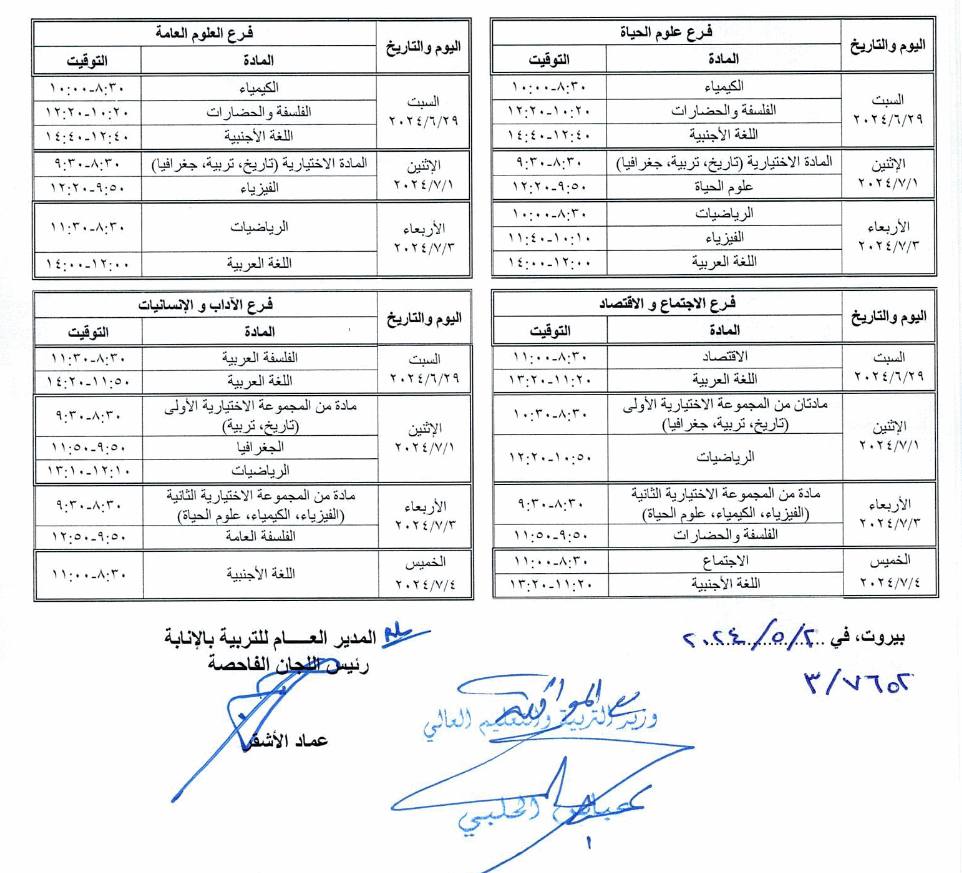 اليوم والتاريخ فرع علوم الحياة
المادة التوقيت
السبت ٢٠٢٤/٦/٢٩
الكيمياء ٨:٣٠-١٠:٠٠
الفلسفة والحضارات ١٠:٢٠-١٢:٢٠
اللغة الأجنبية ١٢:٤٠-١٤:٤٠
الإثنين ٢٠٢٤/٧/١
المادة الاختيارية (تاريخ، تربية، جغرافيا) ٨:٣٠-٩:٣٠
علوم الحياة ٩:٥٠-١٢:٢٠
الأربعاء ٢٠٢٤/٧/٣
الرياضيات ٨:٣٠-١٠:٠٠
الفيزياء ١٠:١٠-١١:٤٠
اللغة العربية ١٢:٠٠-١٤:٠٠
اليوم والتاريخ فرع العلوم العامة
المادة التوقيت
السبت ٢٠٢٤/٦/٢٩
الكيمياء ٨:٣٠-١٠:٠٠
الفلسفة والحضارات ١٠:٢٠-١٢:٢٠
اللغة الأجنبية ١٢:٤٠-١٤:٤٠
الإثنين ٢٠٢٤/٧/١
المادة الاختيارية (تاريخ، تربية، جغرافيا) ٨:٣٠-٩:٣٠
الفيزياء ٩:٥٠-١٢:٢٠
الأربعاء ٢٠٢٤/٧/٣
الرياضيات ٨:٣٠-١١:٣٠
اللغة العربية ١٢:٠٠-١٤:٠٠
اليوم والتاريخ فرع الاجتماع و الاقتصاد
المادة التوقيت
السبت ٢٠٢٤/٦/٢٩
الاقتصاد ٨:٣٠-١١:٠٠
اللغة العربية ١١:٢٠-١٣:٢٠
الإثنين ٢٠٢٤/٧/١
مادتان من المجموعة الاختيارية الأولى
(تاريخ، تربية، جغرافيا) ٨:٣٠-١٠:٣٠
الرياضيات ١٠:٥٠-١٢:٢٠
الأربعاء ٢٠٢٤/٧/٣
مادة من المجموعة الاختيارية الثانية
(الفيزياء، الكيمياء، علوم الحياة) ٨:٣٠-٩:٣٠
الفلسفة والحضارات ٩:٥٠-١١:٥٠
الخميس ٢٠٢٤/٧/٤
الاجتماع ٨:٣٠-١١:٠٠
اللغة الأجنبية ١١:٢٠-١٣:٢٠
اليوم والتاريخ فرع الآداب و الإنسانيات
المادة التوقيت
السبت ٢٠٢٤/٦/٢٩
الفلسفة العربية ٨:٣٠-١١:٣٠
اللغة العربية ١١:٥٠-١٤:٢٠
الإثنين ٢٠٢٤/٧/١
مادة من المجموعة الاختيارية الأولى
(تاريخ، تربية) ٨:٣٠-٩:٣٠
الجغرافيا ٩:٥٠-١١:٥٠
الرياضيات ١٢:١٠-١٣:١٠
الأربعاء ٢٠٢٤/٧/٣
مادة من المجموعة الاختيارية الثانية
(الفيزياء، الكيمياء، علوم الحياة) ٨:٣٠-٩:٣٠
الفلسفة العامة ٩:٥٠-١٢:٥٠
الخميس ٢٠٢٤/٧/٤
اللغة الأجنبية ٨:٣٠-١١:٠٠
بيروت، في ٢٠٢٤/٥/٢
٣/٧٦٥٢
المدير العـــام للتربية بالإنابة
رئيس اللجان الفاحصة
عماد الأشقر
مع الموافقة
وزير التربية والتعليم العالي
عباس الحلبي